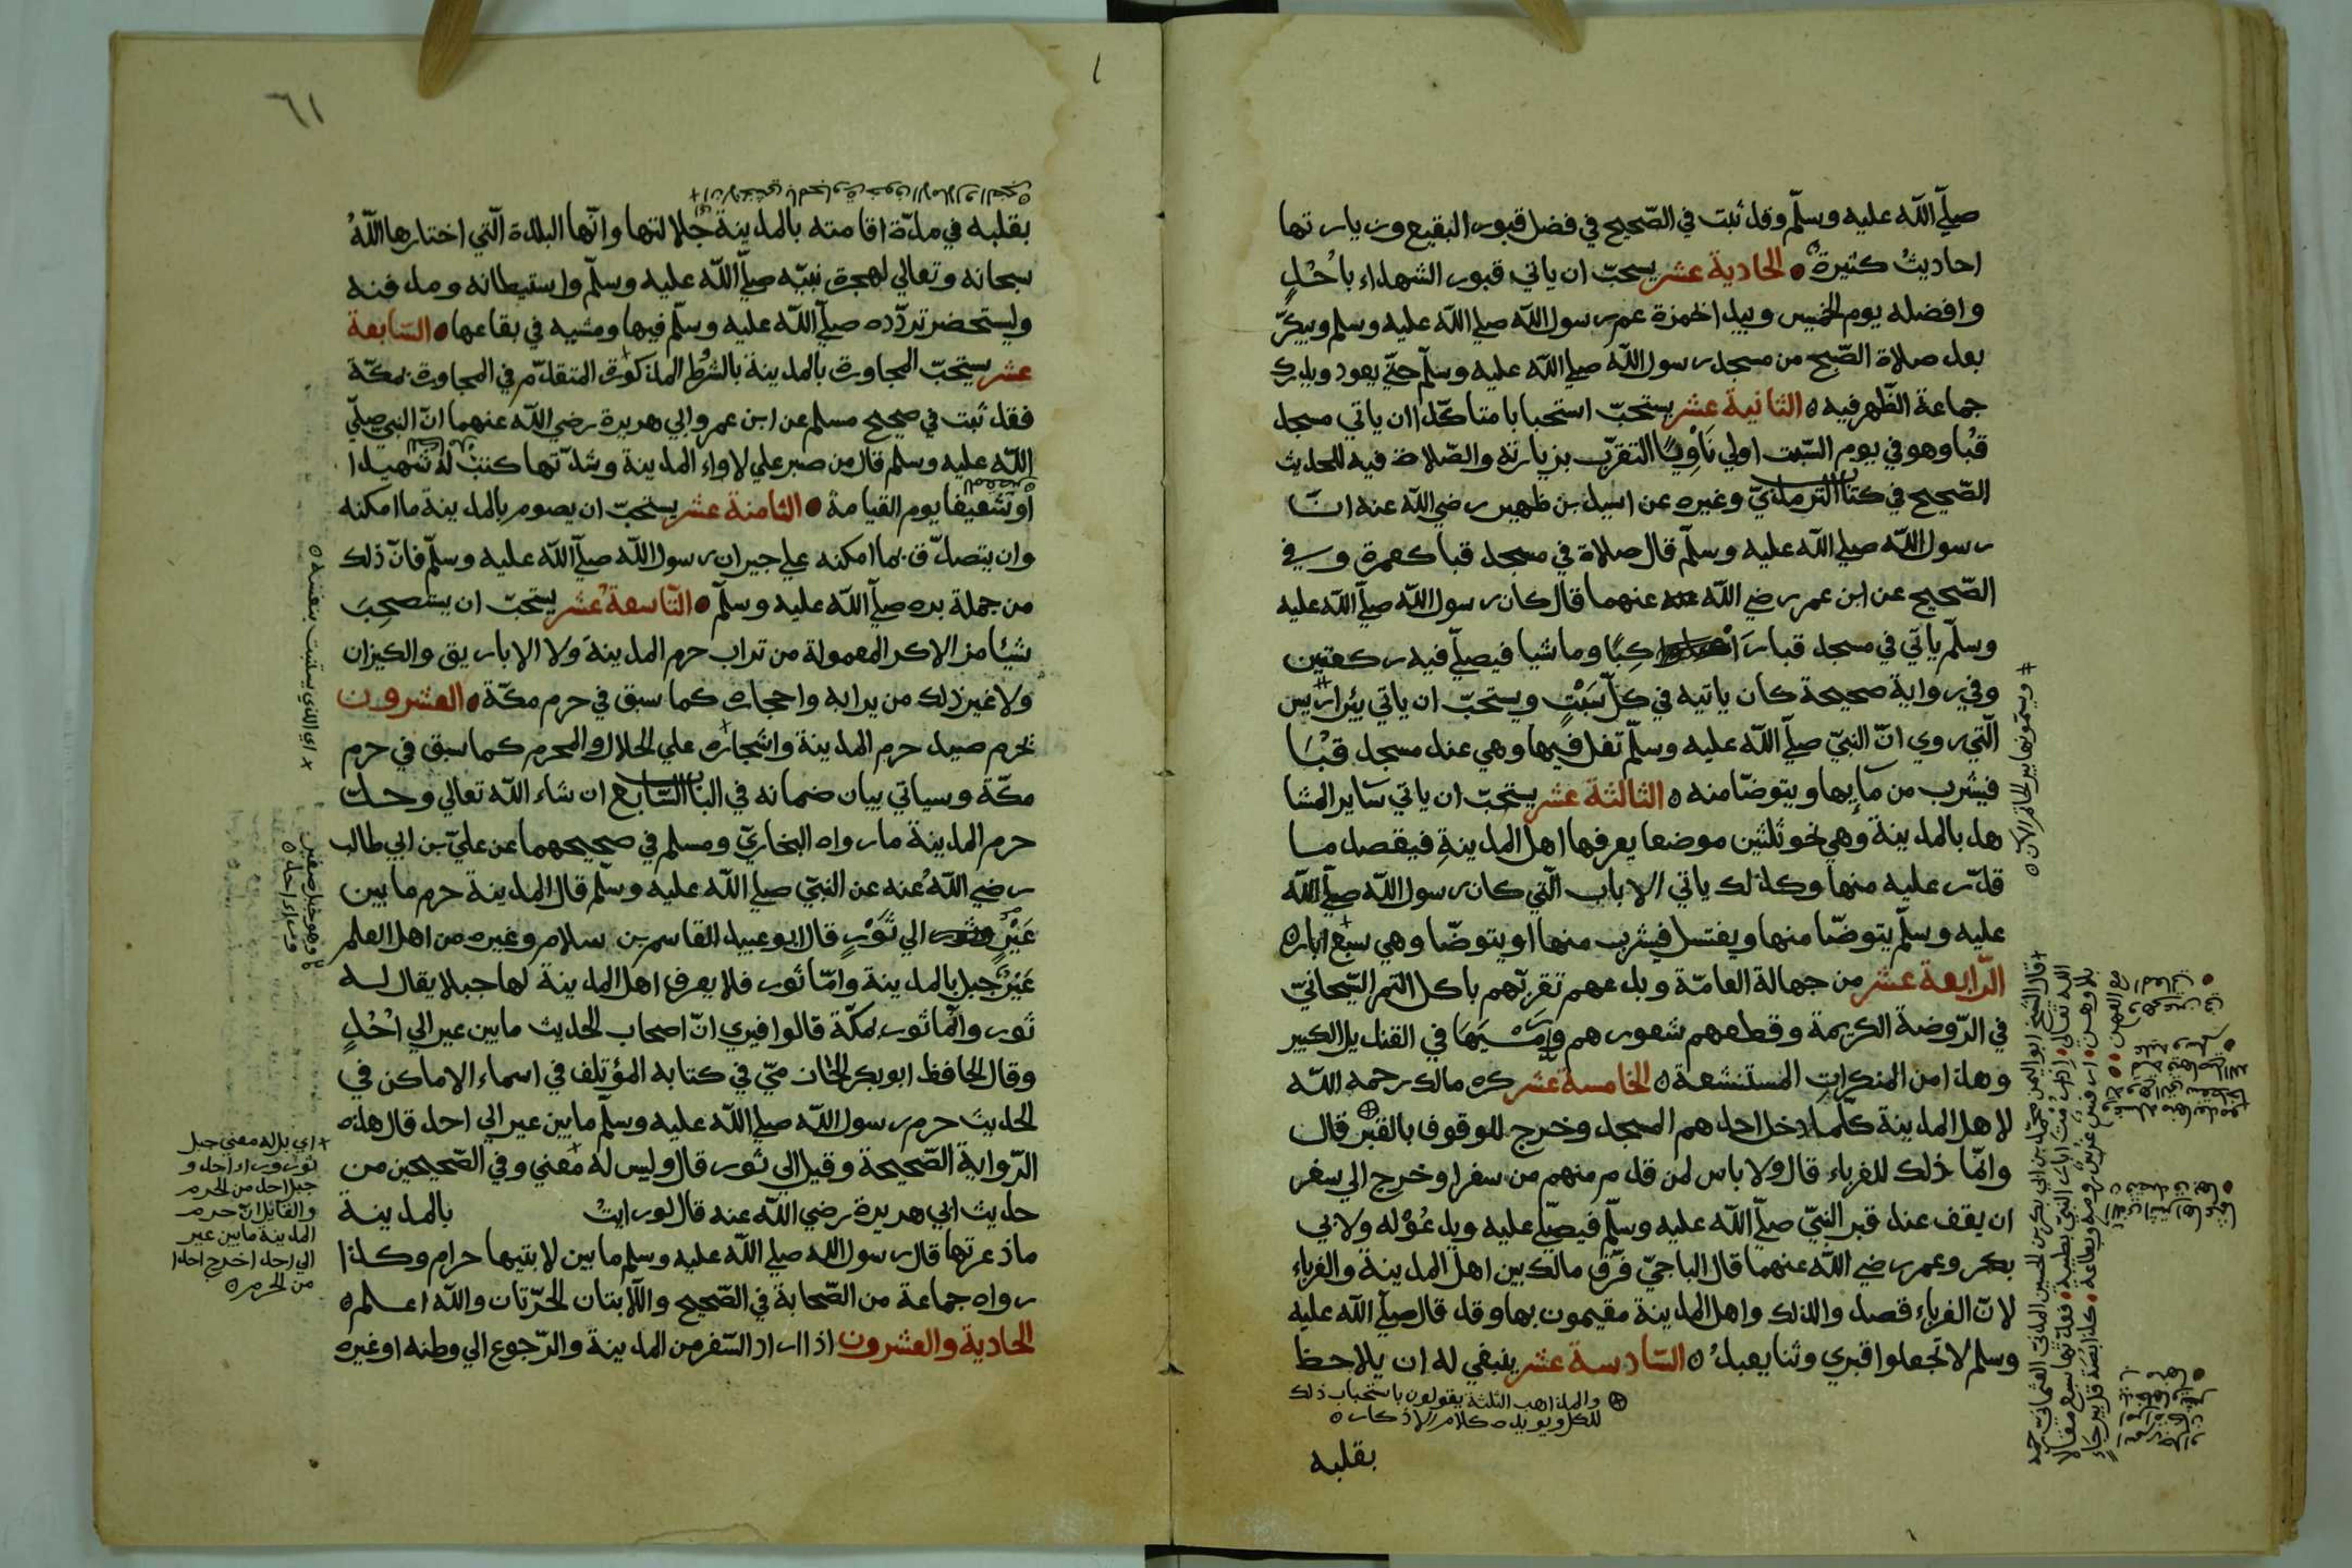 صلّي اللّه عليه وسلّم وقد ثبت في الصّحيح في فضل قبور البقيع وزيارتها
احاديث كثيرة الحادية عشر يستحبّ ان ياتي قبور الشهداء باُحُدٍ
وافضله يوم الخميس ويبدا بحمزة عم رسول اللّه صلي اللّه عليه وسلم ويبكّر
بعد صلاة الصّبح من مسجد رسول اللّه صلي اللّه عليه وسلّم حتّي يعود ويدرك
جماعة الظّهر فيه ٥ الثانية عشر يستحبّ استحبابا متاكّدا ان ياتي مسجد
قُبا وهو في يوم السّبت اولي نَاوِيًا التقرّب بزيارته والصّلاة فيه للحديث
الصّحيح في كتاب الترمذيّ وغيره عن اسيد بن ظهير رضي اللّه عنه انّ
رسول اللّه صلي اللّه عليه وسلّم قال صلاة في مسجد قبا كعمرة وفي
الصّحيح عن ابن عمر رضي اللّه عنهما قال كان رسول اللّه صلّي اللّه عليه
وسلّم ياتي في مسجد قبا راكِبًا وماشيا فيصلّي فيه ركعتين
وفي رواية صحيحة كان ياتيه في كلّ سَبْتٍ ويستحبّ ان ياتي بئر اريس
الّتي روي انّ النبيّ صلّي اللّه عليه وسلّم تفل فيها وهي عند مسجد قُبَا
فيشرب من مآيها ويتوضّا منه ٥ الثالثة عشر يستحبّ ان ياتي ساير المشا
هد بالمدينة وهي نحو ثلثين موضعا يعرفها اهل المدينةِ فيقصد ما
قدّر عليه منها وكذلك ياتي الابار الّتي كان رسول اللّه صلّي اللّه
عليه وسلّم يتوضّا منها ويغتسل فيشرب منها او يتوضّا وهي سبع ابار٥
الرّابعة عشر من جهالة العامّة وبدعهم تقرّبهم باكل التمر الصّيحانيّ
في الرّوضة الكريمة وقطعهم شعورهم ورميها في القنديل الكبير
وهذا من المنكراتِ المستشنعة ٥ الخامسة عشر كره مالك رحمه اللّه
لاهل المدينة كلّما دخل احدهم المسجد وخرج للوقوف بالقبر قال
وانّما ذلك للغرباء قال ولا باس لمن قدم منهم من سفر او خرج الي سفر
ان يقف عند قبر النبيّ صلّي اللّه عليه وسلّم فيصلّي عليه ويدعُوْ له ولابي
بكر وعمر رضي اللّه عنهما قال الباجيّ فرّق مالك بين اهل المدينة والغرباء
لانّ الغرباء قصدوا لذلك واهل المدينة مقيمون بها وقد قال صلّي اللّه عليه
وسلم لا تجعلوا قبري وثنا يعبدُ ٥ السّادسة عشر ينبغي له ان يلاحظ
والمذاهب الثلثة يقولون باستحباب ذلك
للكل ويويده كلام الاذكار ٥
بقلبه
# ويسمّونها بير الخاتم الآن ٥
٦١
بقلبه في مدّة اقامته بالمدينة جلالتها وانّها البلدة الّتي اختارها اللّهُ
سبحانه وتعالي لهجرة نبيّه صلّي اللّه عليه وسلّم واستيطانه ومدفنه
وليستحضر تردّده صلّي اللّه عليه وسلّم فيها ومشيه في بقاعها السّابعة
عشر يستحبّ المجاورة بالمدينة بالشرط المذكورة المتقدّم في المجاورة بمكّة
فقد ثبت في صحيح مسلم عن ابن عمر وابي هريرة رضي اللّه عنهما انّ النبي صلّي
اللّه عليه وسلم قال من صبر علي لاواء المدينة وشدّتها كنت له شهيدا
او شفيعا يوم القيامة الثامنة عشر يستحبّ ان يصوم بالمدينة ما امكنه
وان يتصدّق بما امكنه علي جيران رسول اللّه صلّي اللّه عليه وسلّم فانّ ذلك
من جملة بره صلّي اللّه عليه وسلّم التّاسعة عشر يستحبّ ان يستصحِبَ
شيئا من الاكر المعمولة من تراب حرم المدينة ولا الاباريق والكيزان
ولا غير ذلك من ترابه واحجاره كما سبق في حرم مكّة العشرون
تحرم صيد حرم المدينة واشجاره علي الحلال والمحرم كما سبق في حرم
مكّة وسياتي بيان ضمانه في الباب السّابع ان شاء اللّه تعالي وحدّ
حرم المدينة ما رواه البخاريّ ومسلم في صحيحهما عن عليّ بن ابي طالب
رضي اللّه عنه عن النبيّ صلي اللّه عليه وسلّم قال المدينة حرم ما بين
عَيْرٍ الي ثَوْرٍ قال ابو عبيد القاسم بن سلام وغيره من اهل العلم
عَيْر جبل بالمدينة وامّا ثور فلا يعرف اهل المدينة لها جبلا يقال له
ثور وانّما ثور بمكّة قالوا فيري انّ اصحاب الحديث ما بين عير الي اُحُدٍ
وقال الحافظ ابو بكر الحازميّ في كتابه المؤتلف في اسماء الاماكن في
الحديث حرم رسول اللّه صلي اللّه عليه وسلّم ما بين عير الي احد قال هذه
الرّواية الصّحيحة وقيل الي ثور قال وليس له معني وفي الصّحيحين من
حديث ابي هريرة رضي اللّه عنه قال لو رايتُ بالمدينة
ما ذعرتها قال رسول اللّه صلي اللّه عليه وسلم ما بين لابتيها حرام وكذا
رواه جماعة من الصّحابة في الصّحيح واللّابتان الحرّتان واللّه اعلم٥
الحادية والعشرون اذا اراد السّفر من المدينة والرّجوع الي وطنه او غيره
وهو جبل صغير
وراء احد ٥
+ اي بدله معني جبل
ثور وراء احد و
جبل احد من الحرم
والقايل انّ حرم
المدينة ما بين عير
الي احد اخرج احدا
من الحرم ٥